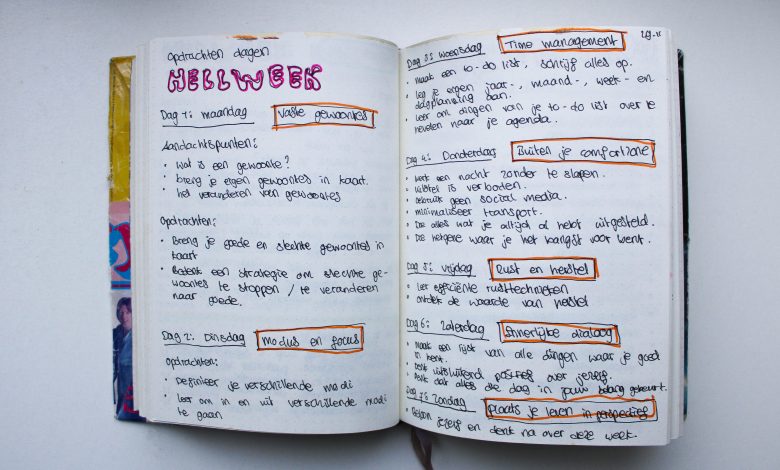 Opdrachten dagen
HELLWEEK
Dag 1: maandag vaste gewoontes
Aandachtspunten:
• wat is een gewoonte?
• breng je eigen gewoontes in kaart.
• het veranderen van gewoontes
Opdrachten:
• Breng je goede en slechte gewoontes in
kaart
• Bedenk een strategie om slechte ge-
woontes te stoppen / te veranderen
naar goede.
Dag 2: Dinsdag modus en focus
opdrachten:
• Definieer je verschillende modi
• leer om in en uit verschillende modi
te gaan
Dag 3: woensdag Time management
• maak een to-do list, schrijf alles op.
• leg je eigen jaar-, maand-, week- en
dagplanning aan.
• leer om dingen van je to-do list over te
hevelen naar je agenda.
Dag 4: Donderdag Buiten je comfortzone
• werk een nacht zonder te slapen.
• uitstel is verboden.
• Gebruik geen social media.
• minimaliseer transport.
• Doe alles wat je altijd al hebt uitgesteld.
• Doe hetgene waar je het bangst voor bent.
Dag 5: vrijdag Rust en herstel
• leer efficiënte rusttechnieken
• ontdek de waarde van herstel
Dag 6: zaterdag Innerlijke dialoog
• Maak een lijst van alle dingen waar je goed
in bent.
• Denk uitsluitend positief over jezelf.
• Denk dat alles die dag in jouw belang gebeurt.
Dag 7: zondag plaats je leven in perspectief
• en denk na over deze week.